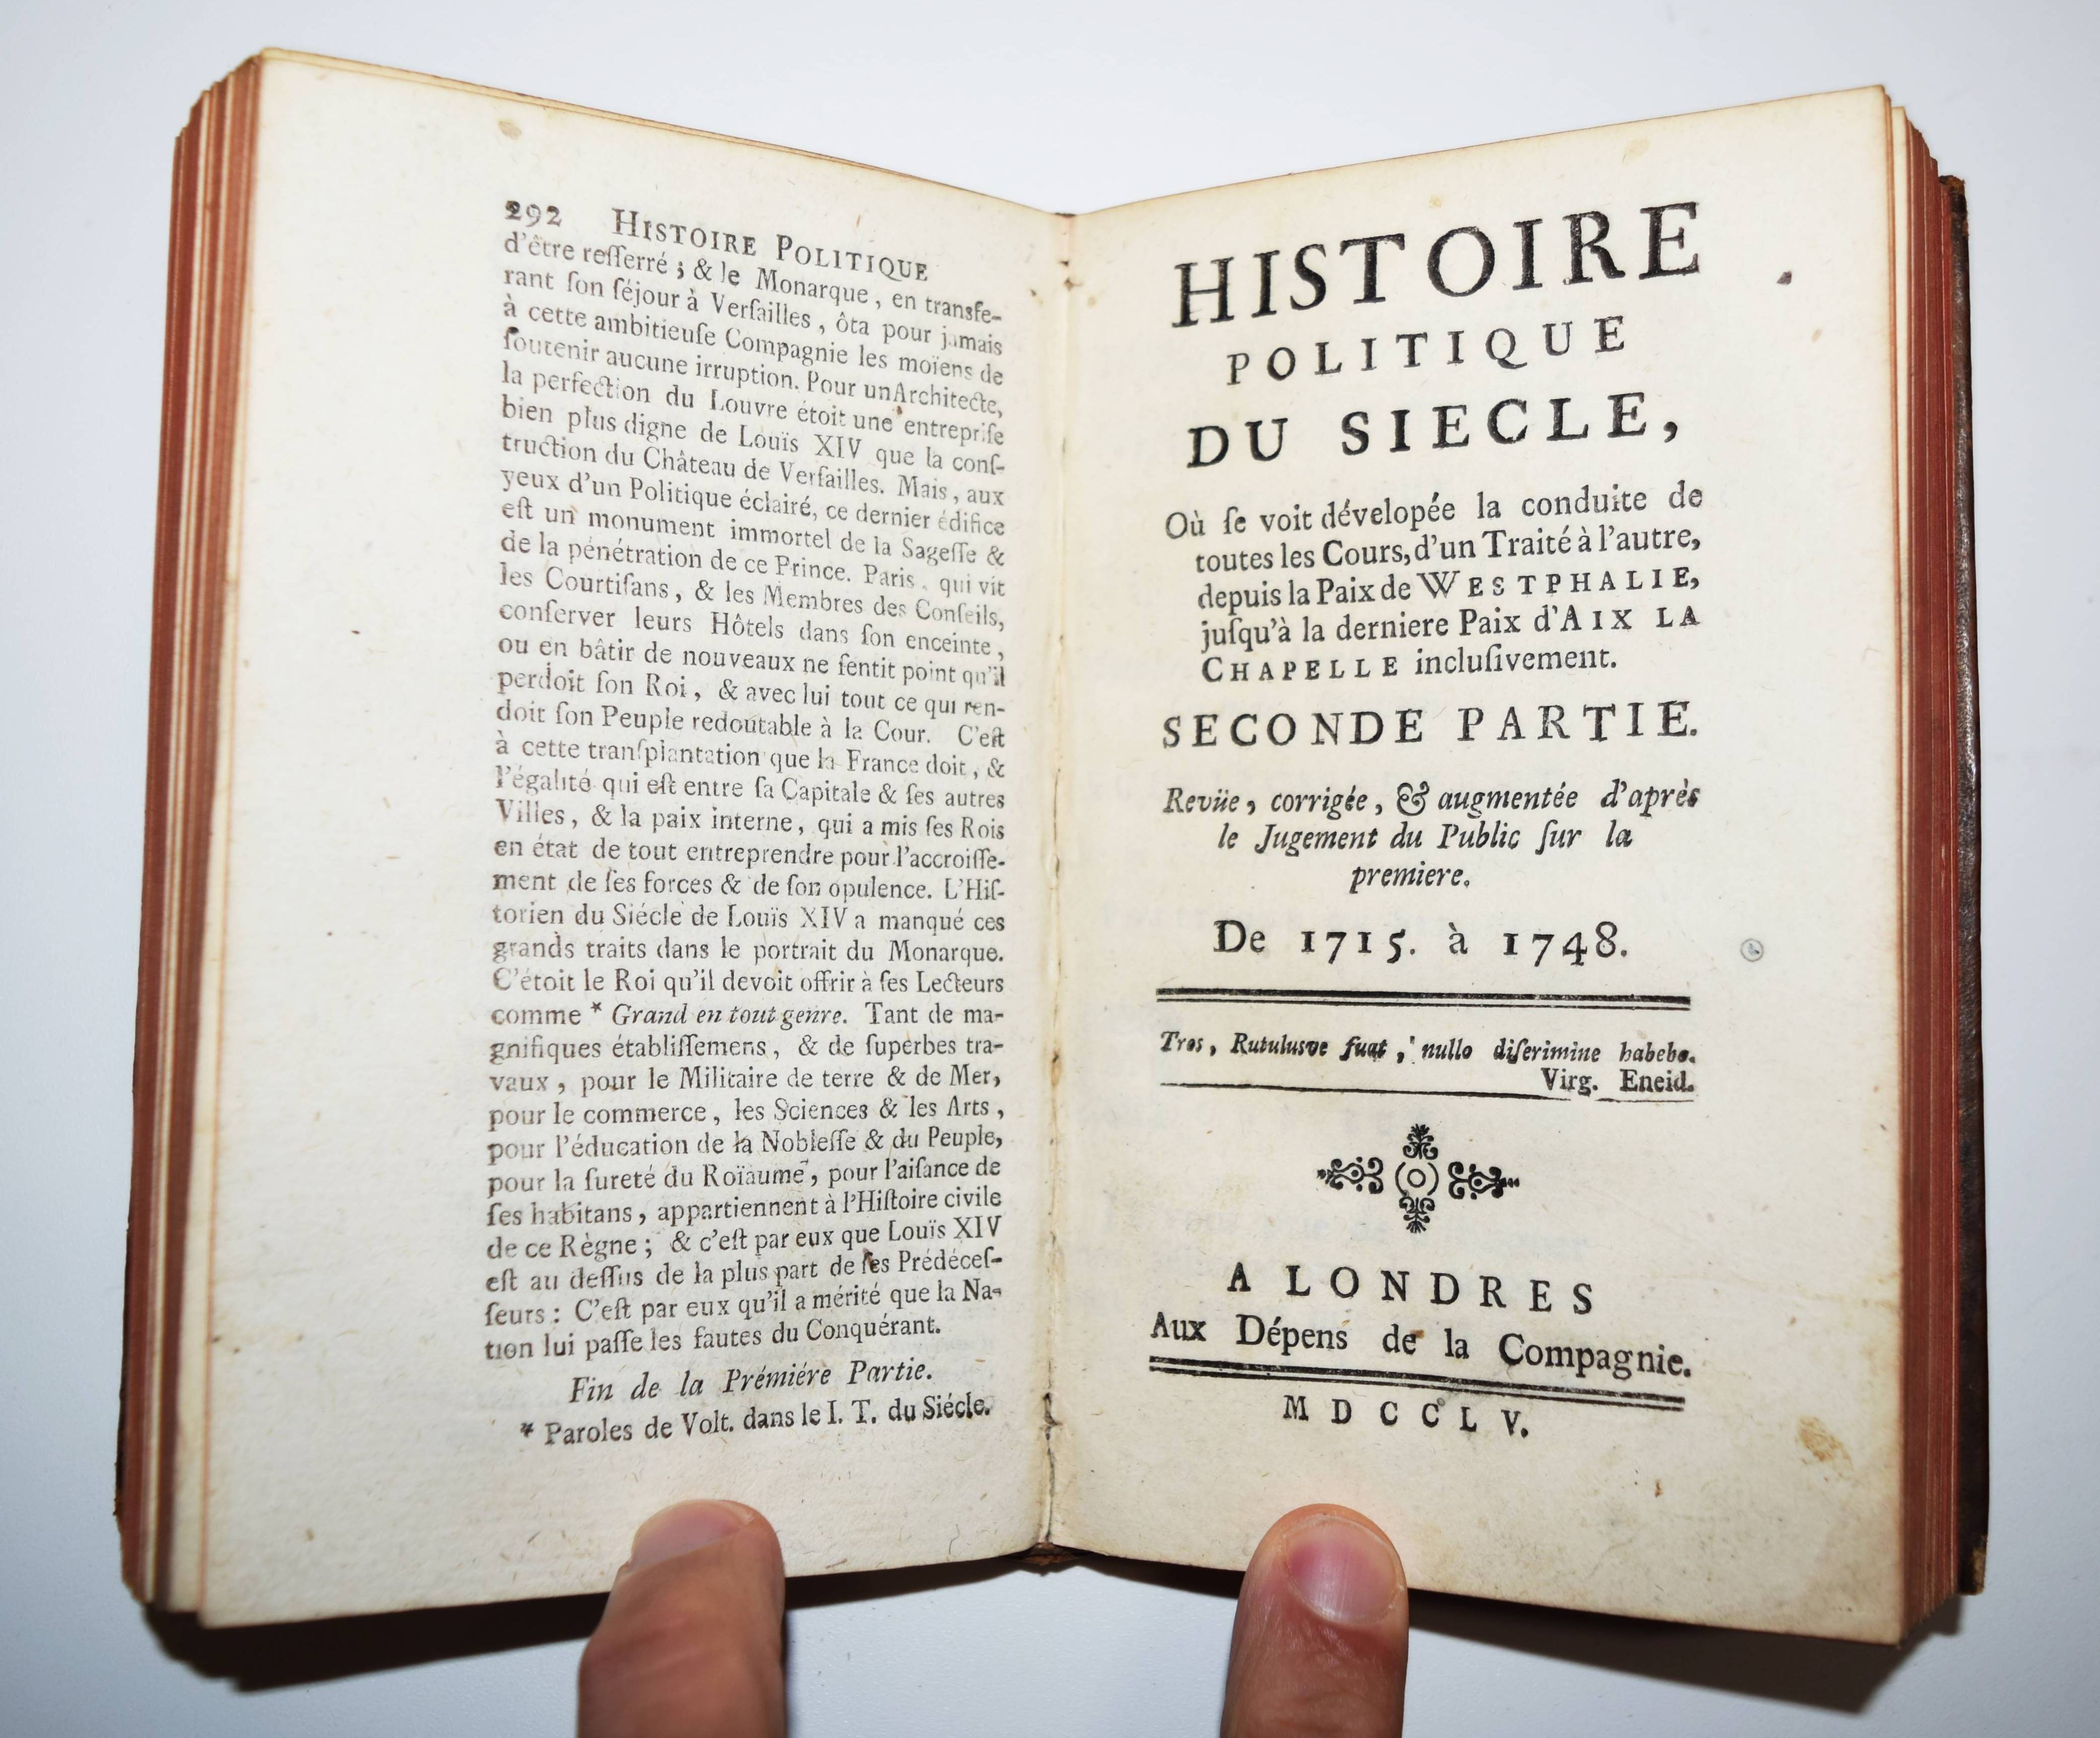 292 HISTOIRE POLITIQUE
d'être reſſerré ; & le Monarque, en transfe-
rant ſon ſéjour à Verſailles, ôta pour jamais
à cette ambitieuſe Compagnie les moïens de
ſoutenir aucune irruption. Pour unArchitecte,
la perfection du Louvre étoit une entrepriſe
bien plus digne de Louïs XIV que la conſ-
truction du Château de Verſailles. Mais, aux
yeux d'un Politique éclairé, ce dernier édifice
eſt un monument immortel de la Sageſſe &
de la pénétration de ce Prince. Paris, qui vit
les Courtiſans, & les Membres des Conſeils,
conſerver leurs Hôtels dans ſon enceinte,
ou en bâtir de nouveaux ne ſentit point qu'il
perdoit ſon Roi, & avec lui tout ce qui ren-
doit ſon Peuple redoutable à la Cour. C'eſt
à cette tranſplantation que la France doit, &
l'égalité qui eſt entre ſa Capitale & ſes autres
Villes, & la paix interne, qui a mis ſes Rois
en état de tout entreprendre pour l'accroiſſe-
ment de ſes forces & de ſon opulence. L'Hiſ-
torien du Siécle de Louïs XIV a manqué ces
grands traits dans le portrait du Monarque.
C'étoit le Roi qu'il devoit offrir à ſes Lecteurs
comme * Grand en tout genre. Tant de ma-
gnifiques établiſſemens, & de ſuperbes tra-
vaux, pour le Militaire de terre & de Mer,
pour le commerce, les Sciences & les Arts,
pour l'éducation de la Nobleſſe & du Peuple,
pour la ſureté du Roïaume, pour l'aiſance de
ſes habitans, appartiennent à l'Hiſtoire civile
de ce Règne ; & c'eſt par eux que Louïs XIV
eſt au deſſus de la plus part de ſes Prédéceſ-
ſeurs : C'eſt par eux qu'il a mérité que la Na-
tion lui paſſe les fautes du Conquérant.
Fin de la Prémiére Partie.
* Paroles de Volt. dans le I. T. du Siécle.
HISTOIRE
POLITIQUE
DU SIECLE,
Où ſe voit dévelopée la conduite de
toutes les Cours, d'un Traité à l'autre,
depuis la Paix de WESTPHALIE,
juſqu'à la derniere Paix d'AIX LA
CHAPELLE incluſivement.
SECONDE PARTIE.
Revüe, corrigée, & augmentée d'après
le Jugement du Public ſur la
premiere.
De 1715. à 1748.
Tros, Rutulusve fuat, nullo diſerimine habebo.
Virg. Eneid.
A LONDRES
Aux Dépens de la Compagnie.
MDCCLV.